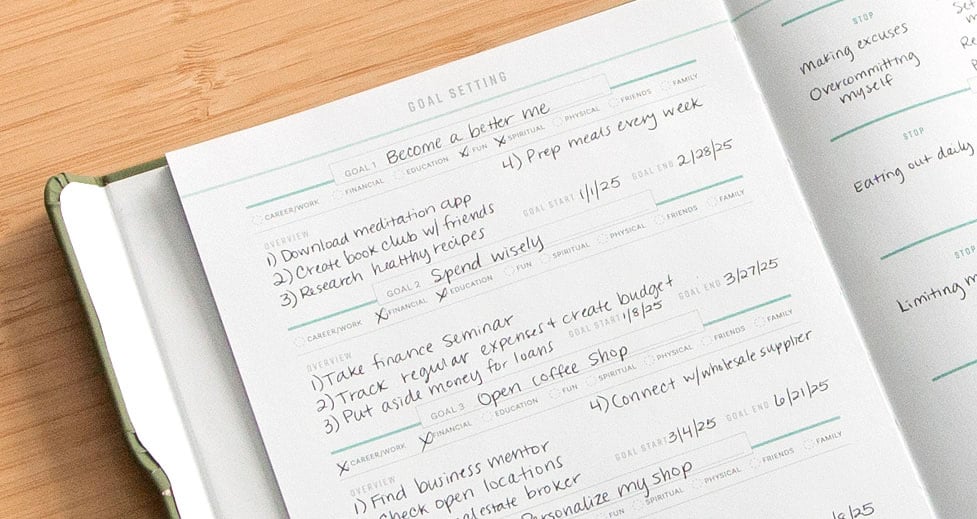 GOAL SETTING
GOAL 1 Become a better me
CAREER/WORK FINANCIAL EDUCATION X FUN X SPIRITUAL PHYSICAL FRIENDS FAMILY
OVERVIEW
1) Download meditation app
2) Create book club w/ friends
3) Research healthy recipes
4) Prep meals every week
GOAL START 1/1/25 GOAL END 2/28/25
GOAL 2 Spend wisely
CAREER/WORK X FINANCIAL X EDUCATION FUN SPIRITUAL PHYSICAL FRIENDS FAMILY
OVERVIEW
1) Take finance seminar
2) Track regular expenses + create budget
3) Put aside money for loans
GOAL START 1/8/25 GOAL END 3/27/25
GOAL 3 Open coffee shop
X CAREER/WORK X FINANCIAL EDUCATION FUN SPIRITUAL PHYSICAL FRIENDS FAMILY
OVERVIEW
1) Find business mentor
check open locations
estate broker
4) Connect w/ wholesale supplier
GOAL START 3/4/25 GOAL END 6/21/25
Personalize my shop
FUN SPIRITUAL PHYSICAL FRIENDS FAMILY
STOP
Making excuses
Overcommitting
myself
STOP
Eating out daily
STOP
Limiting